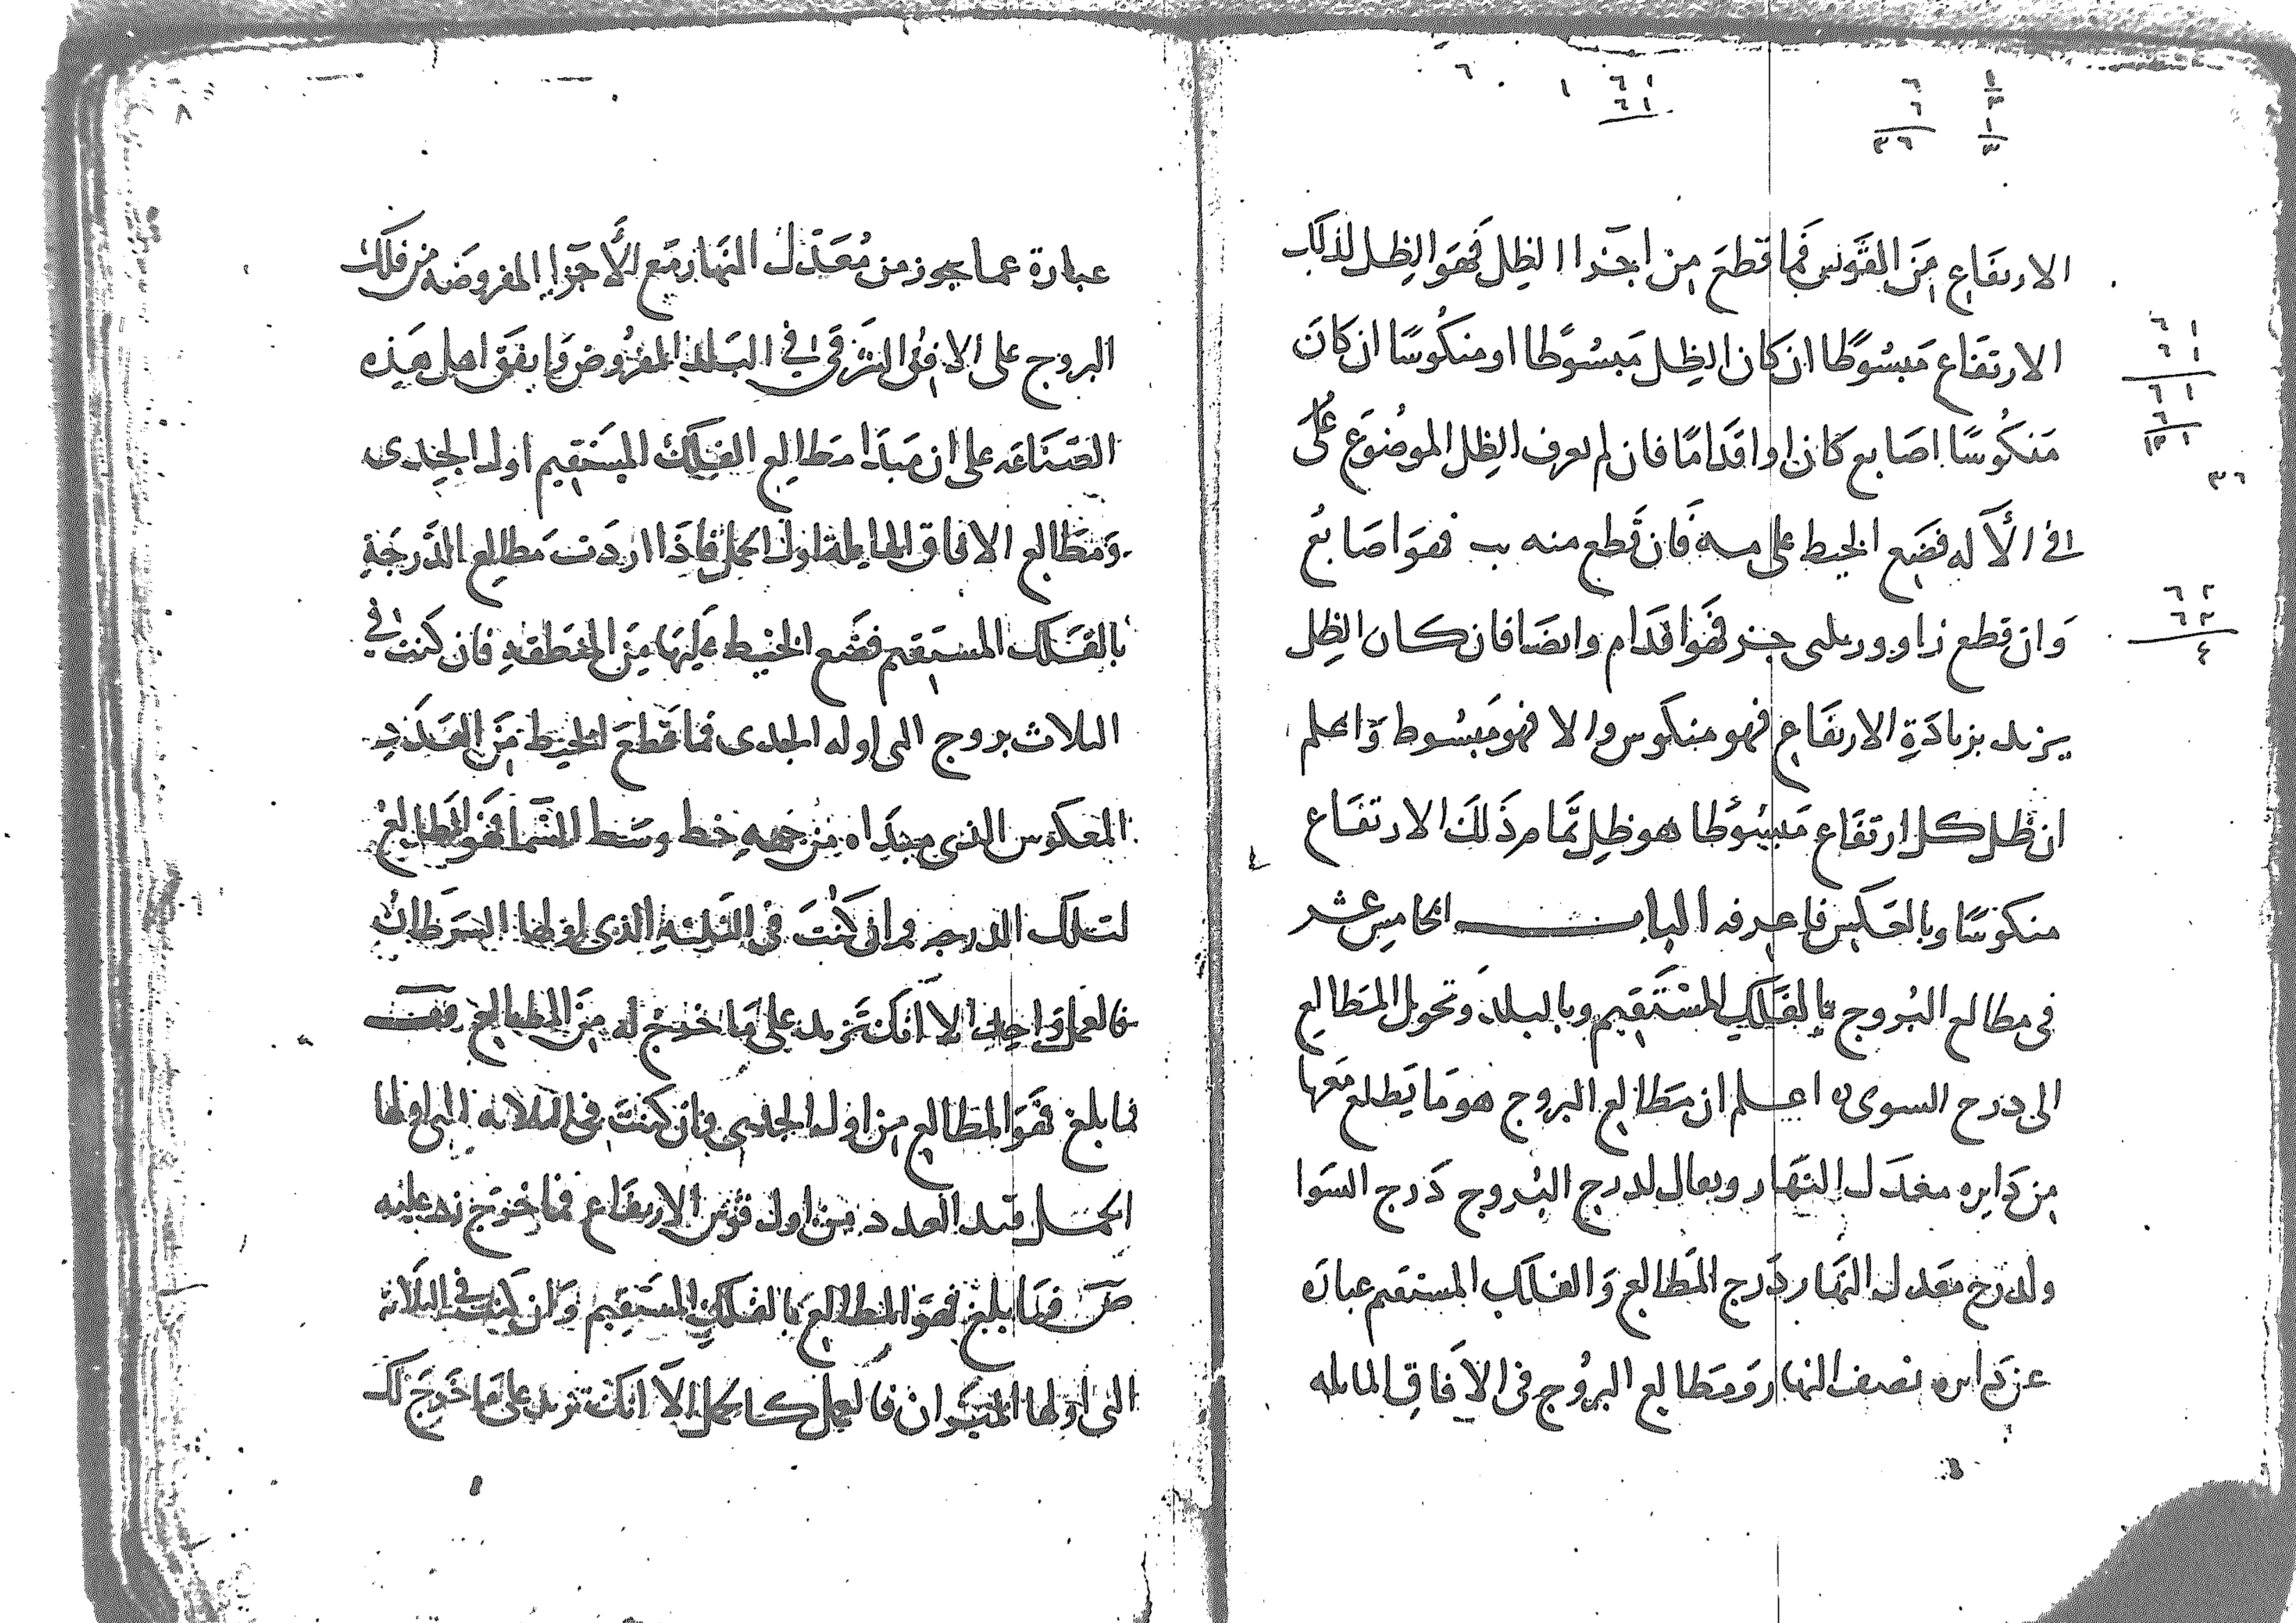 الارتفاع من القوس فما قطع من اجزا الظل فهو الظل لذلك
الارتفاع مبسوطا ان كان الظل مبسوطا او منكوسا ان كان
منكوسا اصابع كان او اقداما فان لم تعرف الظل الموضوع على
الآله فضع الخيط على مه فان قطع منه يب فهو اصابع
وان قطع ز او و فهو اقدام وايضا فان كان الظل
يزيد بزيادة الارتفاع فهو منكوس والا فهو مبسوط واعلم
ان ظل كل ارتفاع مبسوطا هو ظل تمام ذلك الارتفاع
منكوسا وبالعكس فاعرفه الباب الخامس عشر
في مطالع البروج بالفلك المستقيم وبالبلد وتحويل المطالع
الى درج السوى اعلم ان مطالع البروج هو ما يطلع معها
من دايره معدل النهار ويقال لدرج البروج درج السوا
ولدرج معدل النهار درج المطالع والفلك المستقيم عباره
عن دايره نصف النهار ومطالع البروج في الافاق المايله
٨
عبارة عما يجوز من معدل النهار مع الأجزا المفروضه من فلك
البروج على الافق الشرقي في البلد المفروض واتفق اهل هذه
الصناعه على ان مبدا مطالع الفلك المستقيم اول الجدى
ومطالع الافاق المايلة اول الحمل فاذا اردت مطالع الدرجة
بالفلك المستقيم فضع الخيط عليها من المنطقه فان كنت في
الثلاث بروج التي اوله الجدى فما قطع الخيط من العدد
المعكوس الذى مبتداه من جهه خط وسط السما فهو المطالع
لتلك الدرجه وان كنت في الثلثه الذى اولها السرطان
فالعمل واحد الا انك تزيد على ما خرج له من المطالع قف
فما بلغ فهو المطالع من اول الجدى وان كنت في الثلاثه التي اولها
الحمل العدد من اول قوس الارتفاع فما خرج زد عليه
ص فما بلغ فهو المطالع بالفلك المستقيم وان كنت في الثلاثه
التي اولها الميزان فالعمل كالحمل الا انك تزيد على ما خرج لك